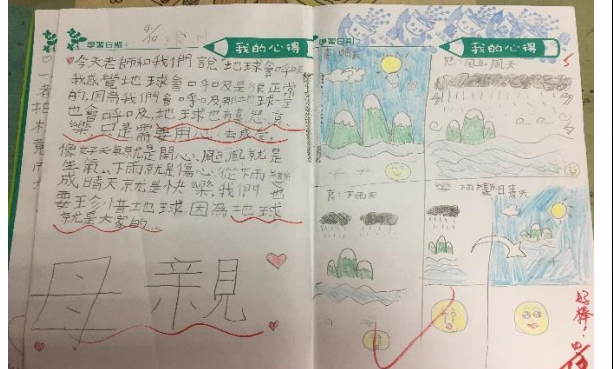 學習日期：
4/10
我的心得
今天老師和我們說地球會呼吸
我感覺地球會呼吸是很正常
的,因為我們會呼吸那地球一定
也會呼吸,地球也有喜怒哀
樂,只是需要用心去感覺。
像好天氣就是開心、颱風就是
生氣、下雨就是傷心、從下雨
成晴天就是快樂,我們也
要珍惜地球因為地球
就是大家的。
母親
學習日期：
我的心得
喜:晴天
怒:颱風天
哀:下雨天
樂:雨變晴天
好棒!